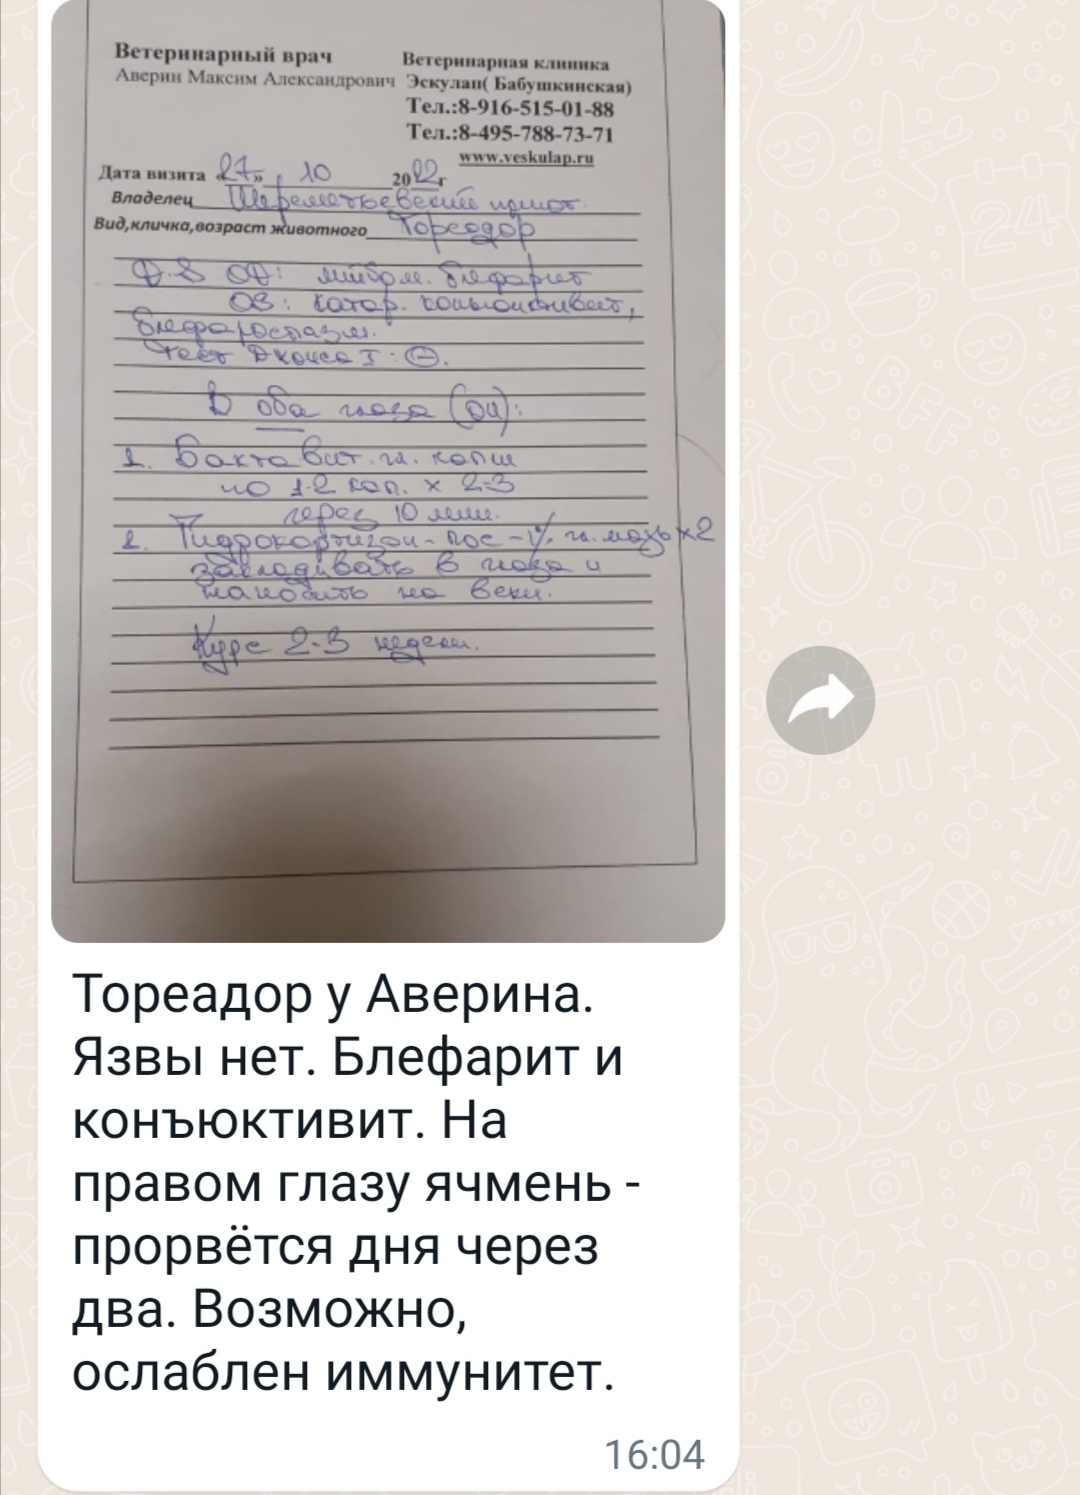 Ветеринарный врач
Аверин Максим Александрович
Ветеринарная клиника
Эскулап( Бабушкинская)
Тел.:8-916-515-01-88
Тел.:8-495-788-73-71
www.veskulap.ru
Дата визита «27» 10 2022г
Владелец Шереметьевский приют.
Вид,кличка,возраст животного Тореодор
D.S OD: мейбом. блефарит
OS: катар. коньюнктивит,
блефароспазм.
Тест Джонса I: ⊖.
В оба глаза (OU):
1. Бактавит. гл. капли
по 1-2 кап. x 2-3
через 10 мин.
2. Гидрокортизон-пос-1% гл. мазь x2
закладывать в глаза и
наносить на веки.
Курс 2-3 недели.
Тореадор у Аверина.
Язвы нет. Блефарит и
конъюктивит. На
правом глазу ячмень -
прорвётся дня через
два. Возможно,
ослаблен иммунитет.
16:04